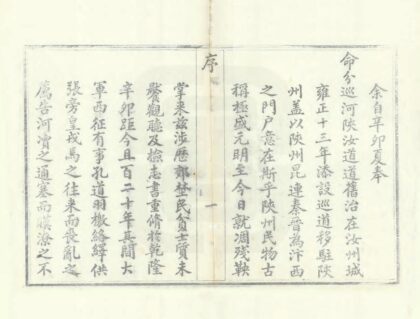 余自辛卯夏奉
命分巡河陝汝道道舊治在汝州城
雍正十三年添設巡道移駐陝
州蓋以陝州毘連秦晉為汴西
之門戶意在斯乎陝州民物古
稱極盛元明至今日就凋殘鞅
序
一
掌來茲涉歷郊埜民貧士質未
饜觀聽及檢志書重修於乾隆
辛卯距今且百二十年其間大
軍西征有事孔道羽檄絡繹供
張旁皇戎馬之往來而喪亂之
薦告河之通塞而暵潦之不